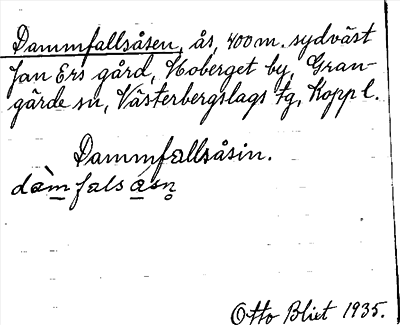 Dammfallsåsen, ås, 400 m. sydväst
Jan Ers gård, Noberget by, Gran-
gärde sn, Västerbergslags tg, Kopp l.
Dammfallsåsin.
dàm falsåsn̥
Otto Blixt 1935.